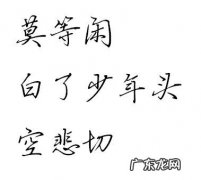 莫等闲
白了少年头
空悲切
广东龙网